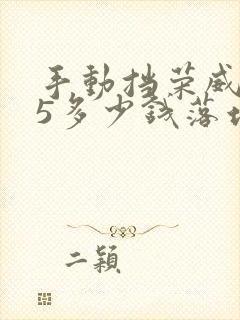 手動挡荣威
5多少錢落地
二穎